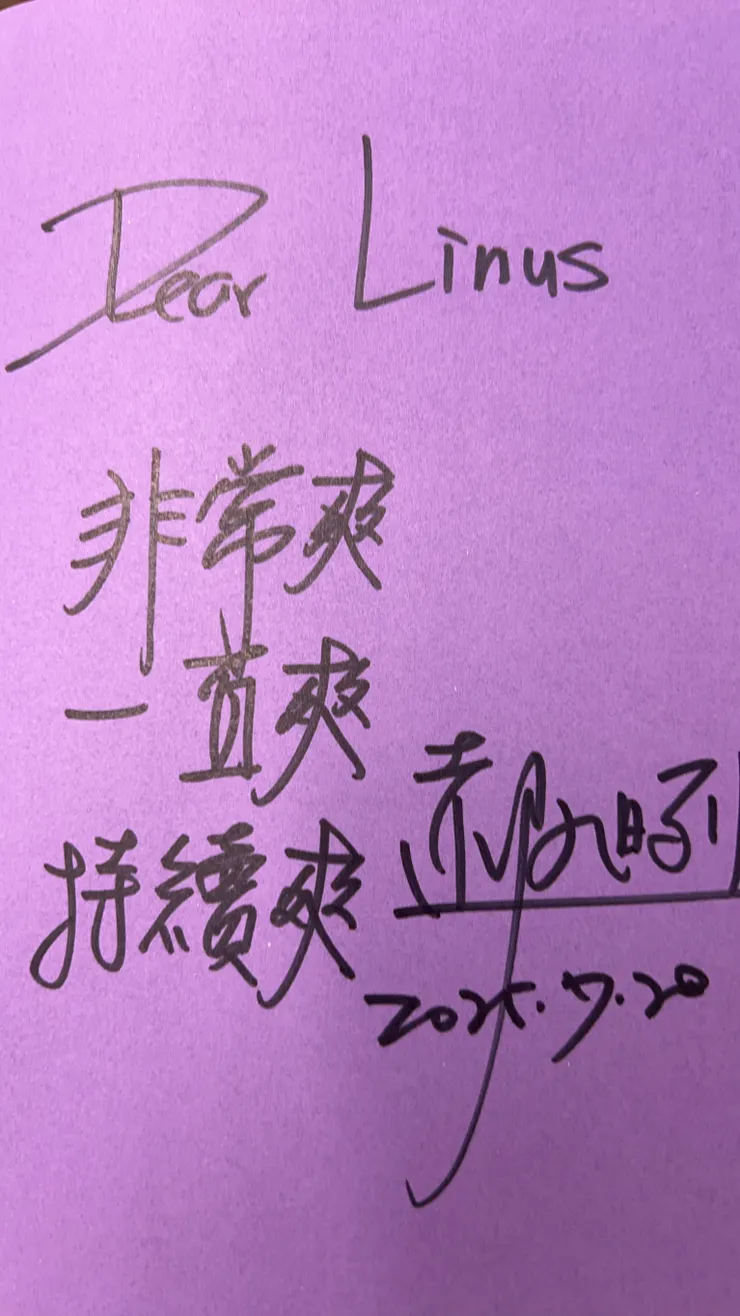 Dear Linus
非常爽
一直爽
持續爽
2025.7.20